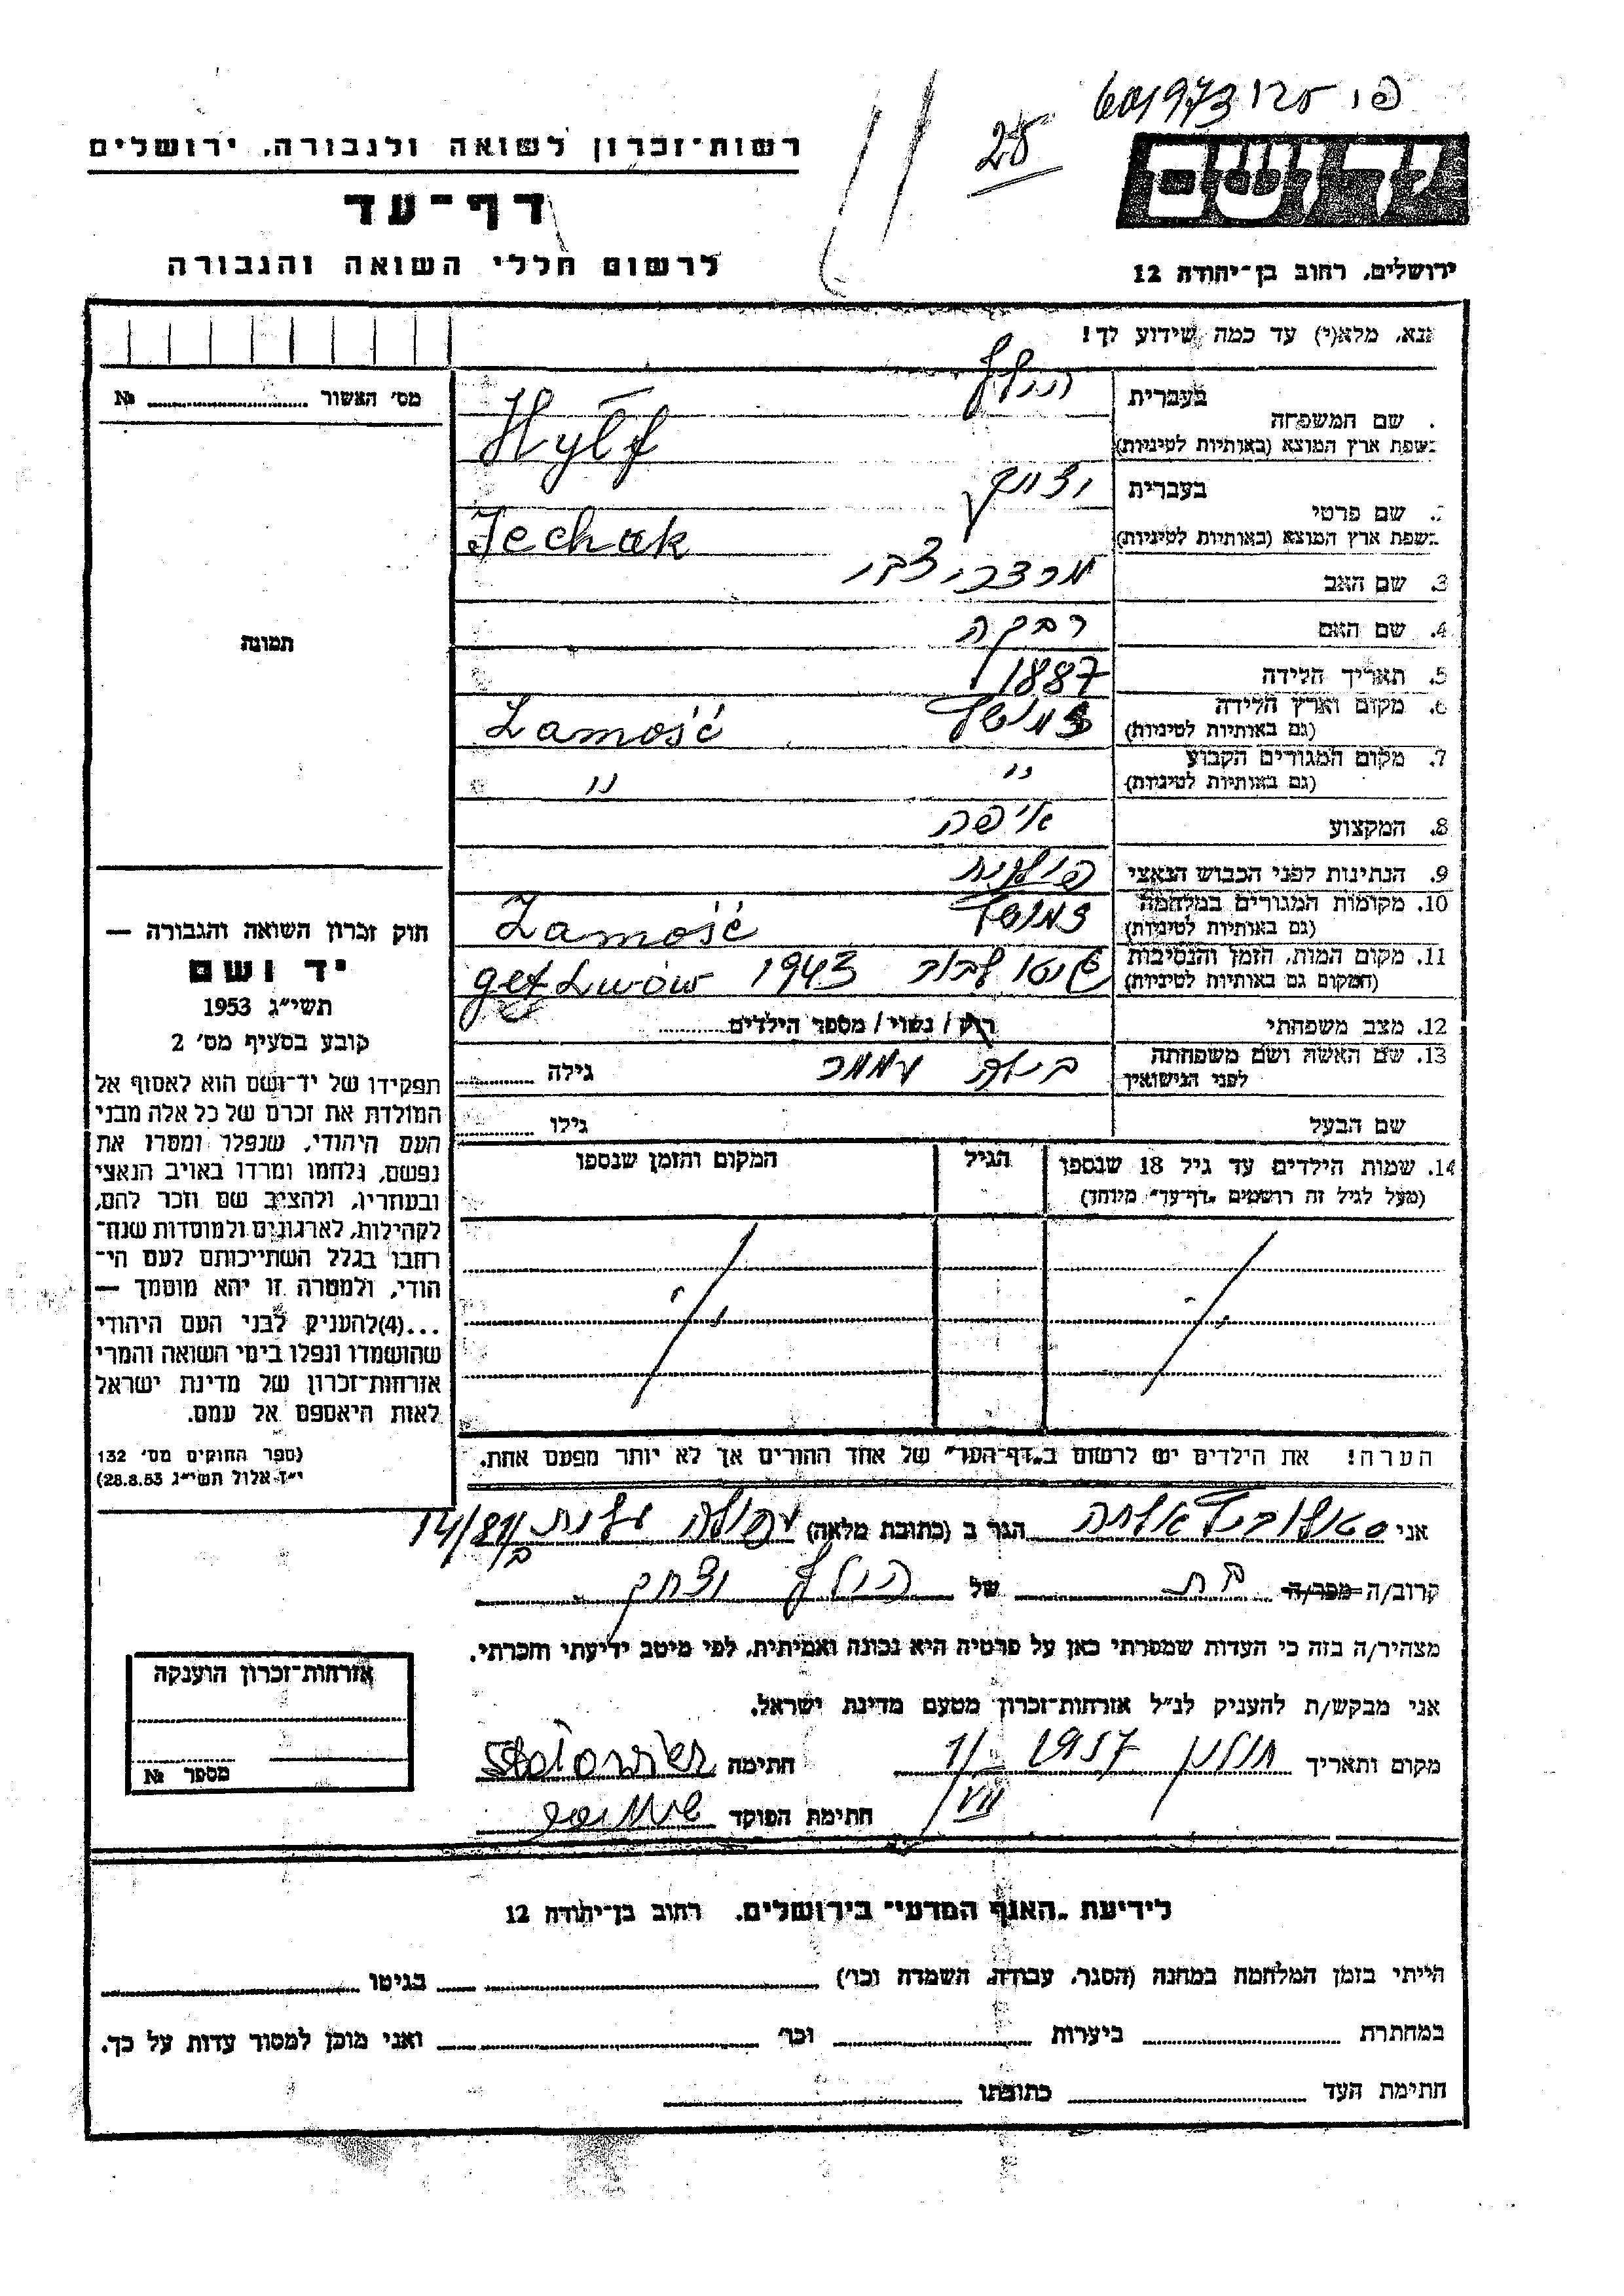 601973
28
רשות־זכרון לשואה ולגבורה, ירושלים
דף־עד
לרשום חללי השואה והגבורה
יד ושם
ירושלים, רחוב בן־יהודה 12
נא, מלא(י) עד כמה שידוע לך!
מס׳ האשור №
שם המשפחה
בעברית הילף
בשפת ארץ המוצא (באותיות לטיניות) Hylf
שם פרטי
בעברית יצחק
בשפת ארץ המוצא (באותיות לטיניות) Jechak
3. שם האב מרדכי צבי
4. שם האם רבקה
5. תאריך הלידה 1887
6. מקום וארץ הלידה (גם באותיות לטיניות) זמושץ Zamość
7. מקום המגורים הקבוע (גם באותיות לטיניות) " "
8. המקצוע אופה
9. הנתינות לפני הכבוש הנאצי פולנית
10. מקומות המגורים במלחמה (גם באותיות לטיניות) זמושץ Zamość
11. מקום המות, הזמן והנסיבות (המקום גם באותיות לטיניות) גיטו לבוב 1943 get Lwów
12. מצב משפחתי רווק / נשוי / מספר הילדים
13. שם האשה ושם משפחתה לפני הנישואין גילה
שם הבעל גילו
14. שמות הילדים עד גיל 18 שנספו (מעל לגיל זה רושמים „דף־עד״ מיוחד) הגיל המקום והזמן שנספו
הערה! את הילדים יש לרשום ב„דף־העד״ של אחד ההורים אך לא יותר מפעם אחת.
תמונה
חוק זכרון השואה והגבורה —
יד ושם
תשי״ג 1953
קובע בסעיף מס׳ 2
תפקידו של יד־ושם הוא לאסוף אל
המולדת את זכרם של כל אלה מבני
העם היהודי, שנפלו ומסרו את
נפשם, נלחמו ומרדו באויב הנאצי
ובעוזריו, ולהציב שם וזכר להם,
לקהילות, לארגונים ולמוסדות שנח־
רבו בגלל השתייכותם לעם הי־
הודי, ולמטרה זו יהא מוסמך —
...(4)להעניק לבני העם היהודי
שהושמדו ונפלו בימי השואה והמרי
אזרחות־זכרון של מדינת ישראל
לאות היאספם אל עמם.
(ספר החוקים מס׳ 132
י״ז אלול תשי״ג 28.8.53)
אני הגר ב (כתובת מלאה) 14/81
קרוב/ה מכר/ה בת של הילף יצחק
מצהיר/ה בזה כי העדות שמסרתי כאן על פרטיה היא נכונה ואמיתית, לפי מיטב ידיעתי והכרתי.
אני מבקש/ת להעניק לנ״ל אזרחות־זכרון מטעם מדינת ישראל.
מקום ותאריך חולון 1957 1/VII חתימה
חתימת הפוקד
אזרחות־זכרון הוענקה
מספר №
לידיעת „האגף המדעי״ בירושלים, רחוב בן־יהודה 12
הייתי בזמן המלחמה במחנה (הסגר, עבודה, השמדה וכו׳) בגיטו
במחתרת ביערות וכו׳ ואני מוכן למסור עדות על כך.
חתימת העד כתובתו